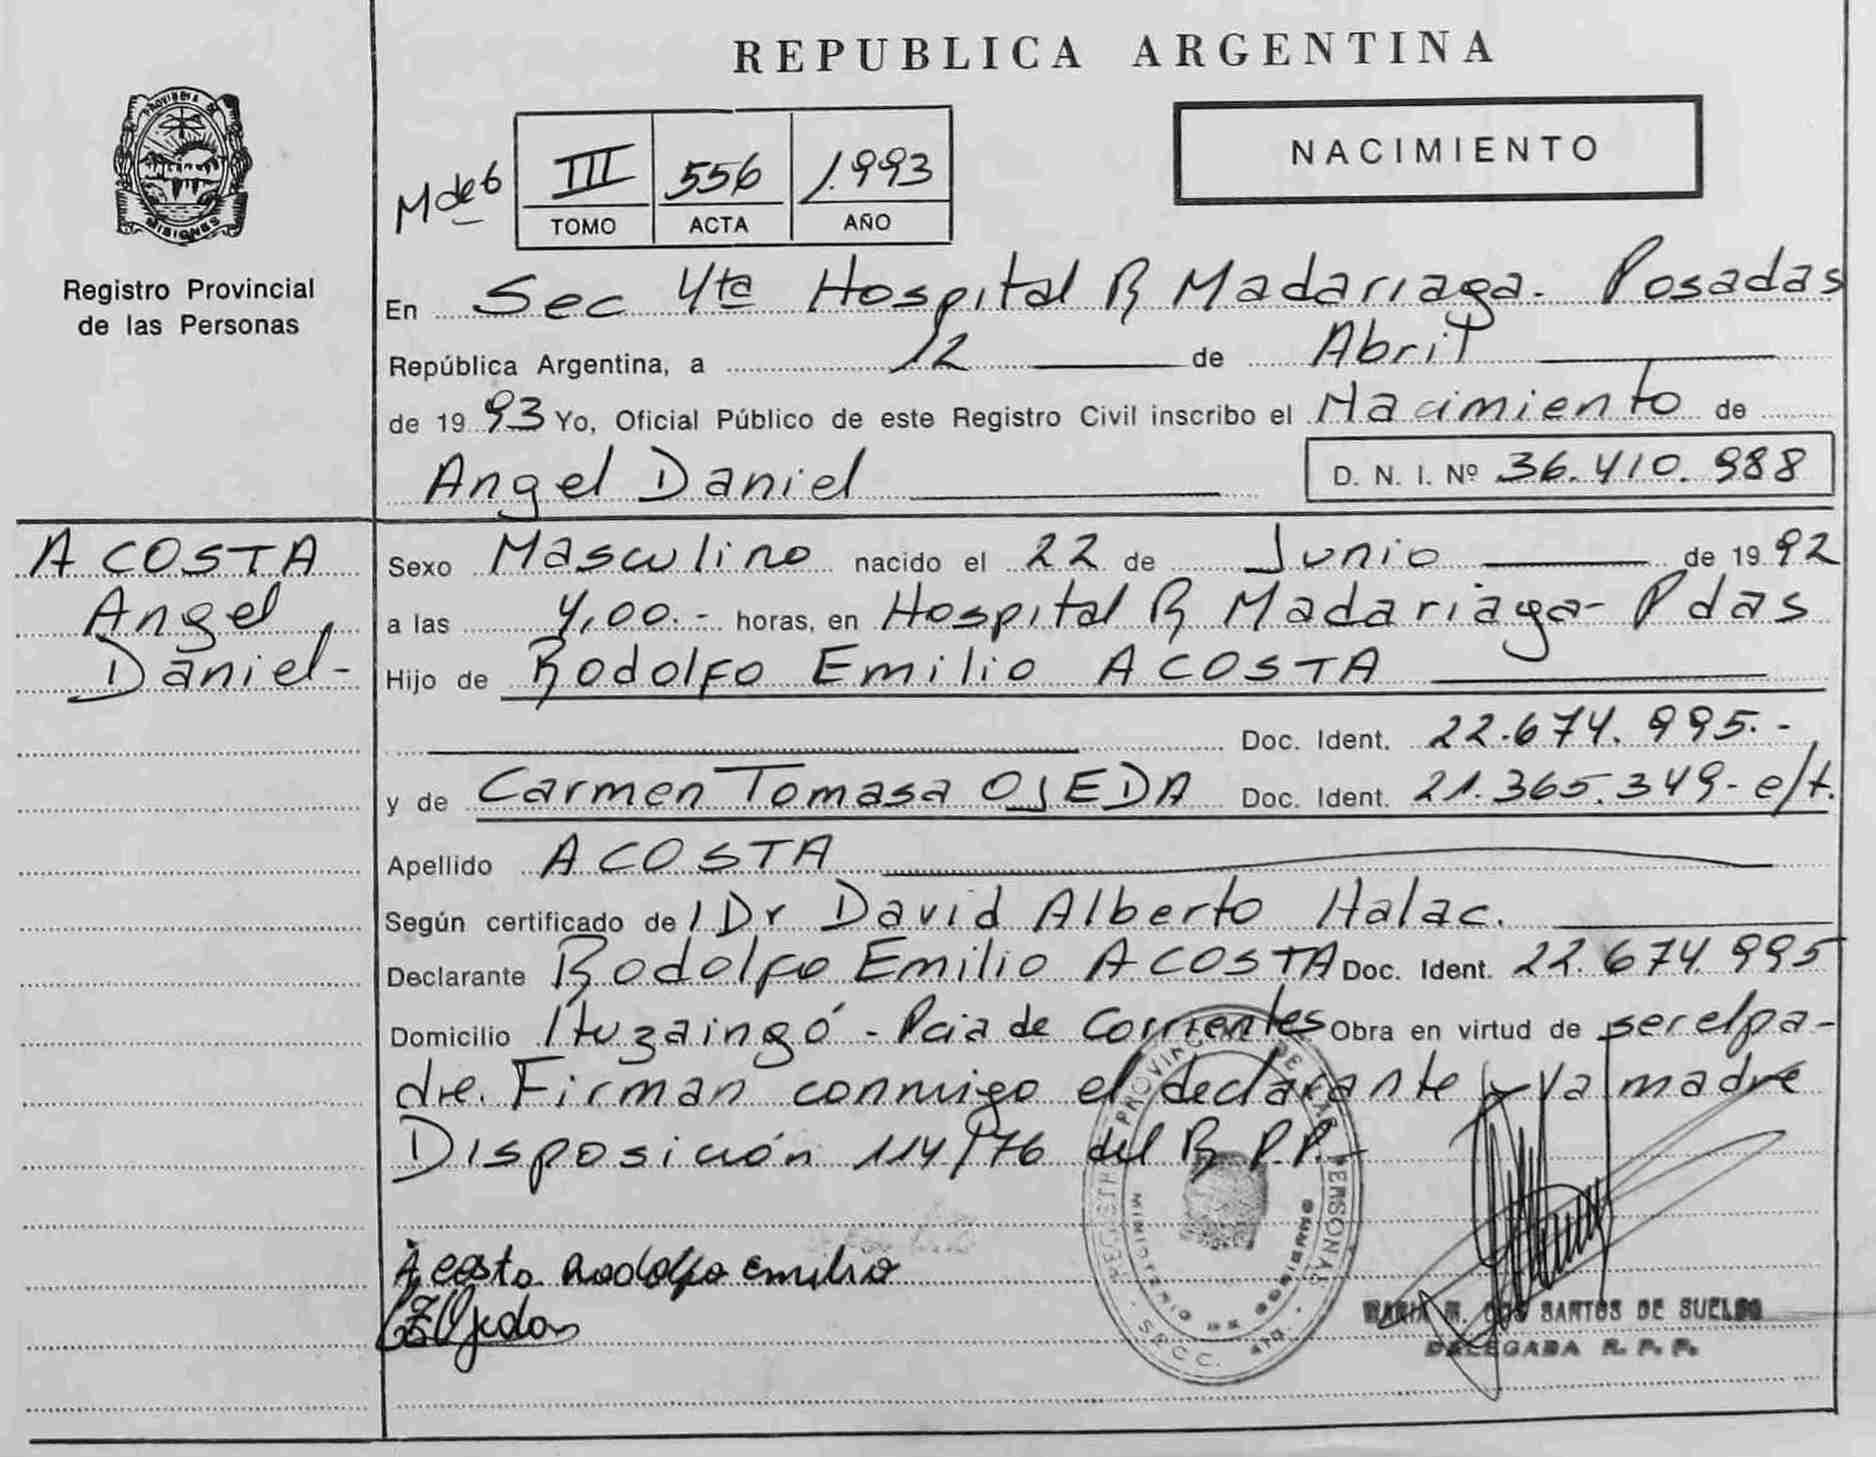 REPUBLICA ARGENTINA
PROVINCIA DE
MISIONES
Registro Provincial
de las Personas
NACIMIENTO
M de 6
III 556 1.993
TOMO ACTA AÑO
En Sec 4ta Hospital R Madariaga. Posadas
República Argentina, a 12 de Abril
de 1993 Yo, Oficial Público de este Registro Civil inscribo el Nacimiento de
Angel Daniel D. N. I. Nº 36.410.988
ACOSTA
Angel
Daniel-
Sexo Masculino nacido el 22 de Junio de 1992
a las 4,00.- horas, en Hospital R Madariaga- Pdas
Hijo de Rodolfo Emilio ACOSTA
Doc. Ident. 22.674.995.-
y de Carmen Tomasa OJEDA Doc. Ident. 21.365.349- e/t.
Apellido ACOSTA
Según certificado de l Dr David Alberto Halac.
Declarante Rodolfo Emilio ACOSTA Doc. Ident. 22.674.995
Domicilio Ituzaingó - Pcia de Corrientes Obra en virtud de ser el pa-
dre. Firman conmigo el declarante y la madre
Disposición 114/76 del R.P.P.-
Acosta Rodolfo Emilio
Ojeda
REGISTRO PROVINCIAL DE LAS PERSONAS
MINISTERIO DE GOBIERNO
SECC. 4TA.
MARIA M. DOS SANTOS DE SUELDO
DELEGADA R. P. P.